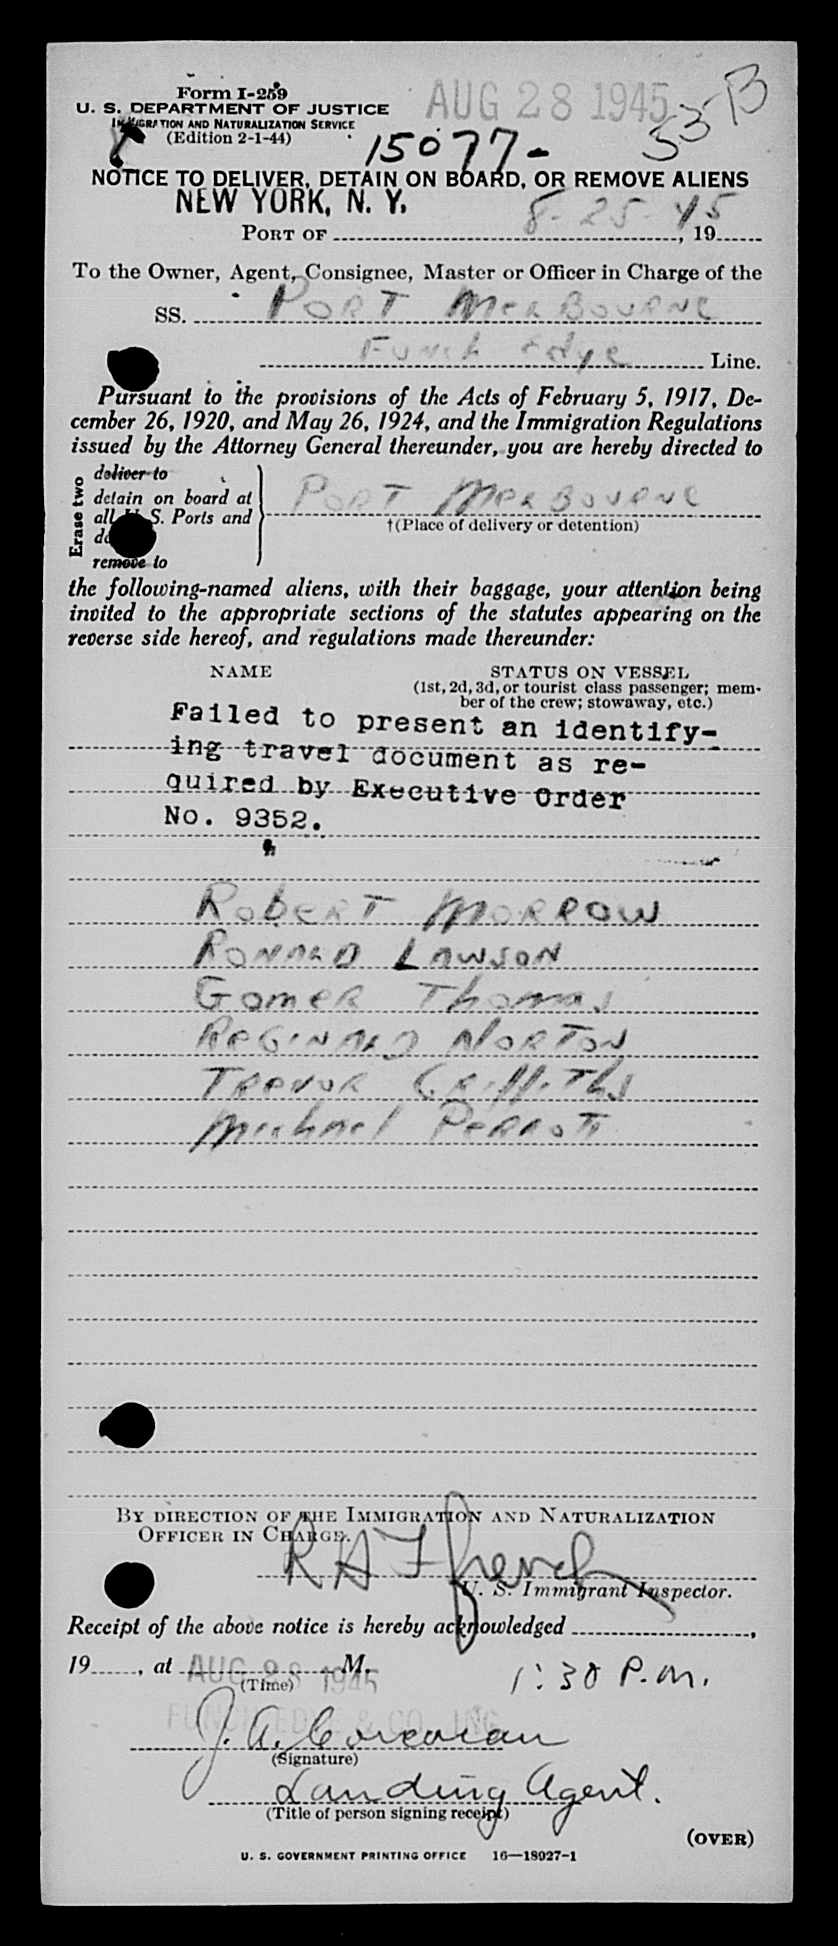 Form I-259
U. S. DEPARTMENT OF JUSTICE
IMMIGRATION AND NATURALIZATION SERVICE
(Edition 2-1-44)
AUG 28 1945
53-B
15077-
NOTICE TO DELIVER, DETAIN ON BOARD, OR REMOVE ALIENS
NEW YORK, N. Y.
PORT OF 8-25-45, 19
To the Owner, Agent, Consignee, Master or Officer in Charge of the
SS. PORT MELBOURNE
Funch Edye Line.
Pursuant to the provisions of the Acts of February 5, 1917, De-
cember 26, 1920, and May 26, 1924, and the Immigration Regulations
issued by the Attorney General thereunder, you are hereby directed to
Erase two
deliver to
detain on board at
all U. S. Ports and
remove to
PORT MELBOURNE
†(Place of delivery or detention)
the following-named aliens, with their baggage, your attention being
invited to the appropriate sections of the statutes appearing on the
reverse side hereof, and regulations made thereunder:
NAME STATUS ON VESSEL
(1st, 2d, 3d, or tourist class passenger; mem-
ber of the crew; stowaway, etc.)
Failed to present an identify-
ing travel document as re-
quired by Executive Order
No. 9352.
ROBERT MORROW
RONALD LAWSON
GOMER Thomas
REGINALD NORTON
TREVOR GRiffiThs
Michael PERROTT
BY DIRECTION OF THE IMMIGRATION AND NATURALIZATION
OFFICER IN CHARGE.
R A French
U. S. Immigrant Inspector.
Receipt of the above notice is hereby acknowledged ,
19 , at AUG 28 1945 M. 1:30 P.M.
(Time)
FUNCH EDYE & CO., INC.
J. A. Corcoran
(Signature)
Landing Agent.
(Title of person signing receipt)
(OVER)
U. S. GOVERNMENT PRINTING OFFICE 16—18927-1